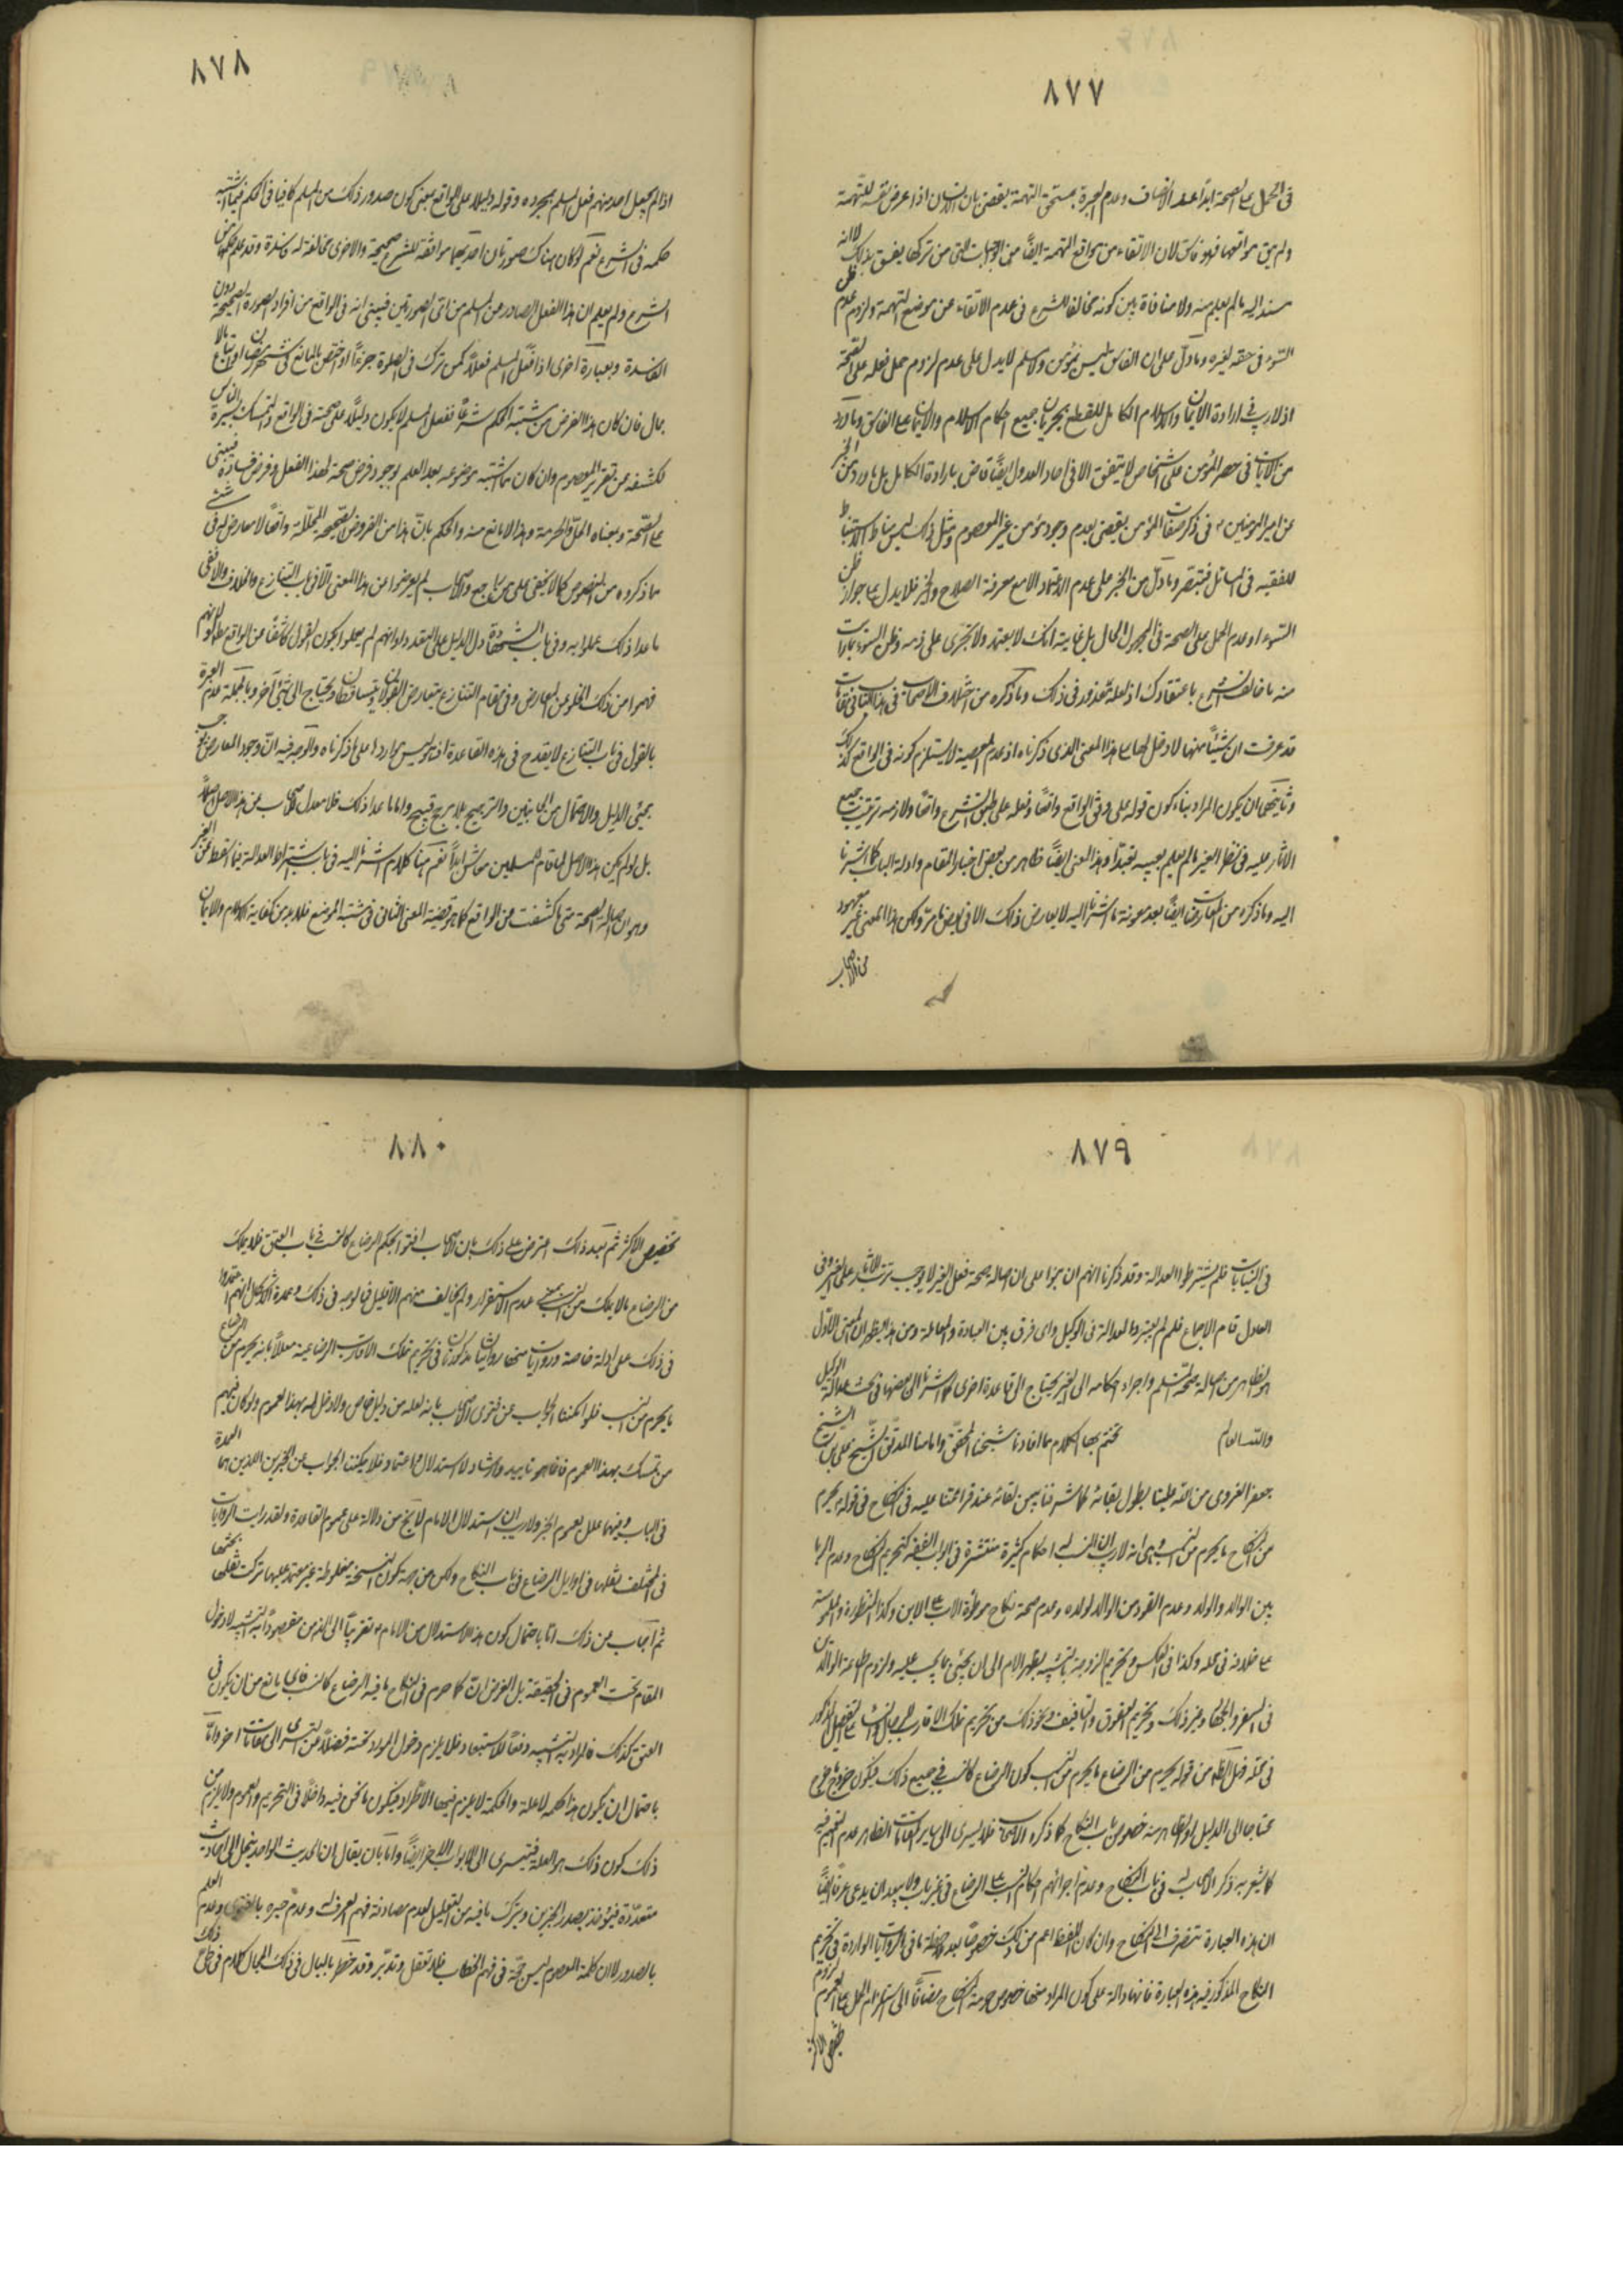 ٨٧٧
فى الحمل على الصحة ابداً عند الانصاف وعدم العبرة بمستحق التهمة يقضى بان الانسان اذا عرض نفسه للتهمة
ولم يتق مواقعها فهو فاسق لان الاتقاء من مواقع التهمة ايضاً من الواجبات التى من تركها يفسق بذلك لا انه
يسند اليه ما لم يعلم منه ولا منافاة بين كونه مخالفا للشرع فى عدم الاتقاء عن موضع التهمة ولزوم عدم ظن
السوء فى حقه لغيره وما دلّ على ان الفاسق ليس بمؤمن ولا مسلم لا يدل على عدم لزوم حمل فعله على الصحة
اذ لا ريب فى ارادة الايمان والاسلام الكامل للقطع بجريان جميع احكام الاسلام والايمان على الفاسق وما ورد
من الايات فى حصر المؤمن على اشخاص لا يتفق الا فى احاد العدول ايضاً قاض بارادة الكامل بل ما ورد من الخبر
عن امير المؤمنين ع فى ذكر صفات المؤمن يقضى بعدم وجود مؤمن غير المعصوم ومثل ذلك ليس مناط الاستنباط
للفقيه فى المسائل فتبصر وما دلّ من الخبر على عدم الاعتماد الا مع معرفة الصلاح والخير فلا يدل على جواز ظن
السوء او عدم الحمل على الصحة فى المجهول الحال بل غايته انك لا تعتمد ولا تجرى على ذمه وظن السوء بما رات
منه ما خالف الشرع باعتقادك اذ لعله معذور فى ذلك وما ذكره من اختلاف الاصحاب فى هذا الباب فى مقامات
قد عرفت ان شيئاً منها لا دخل لها على هذا المعنى الذى ذكرناه اذ عدم المعصية لا يستلزم كونه فى الواقع كذلك
وثانيتهما ان يكون المراد بناء كون قوله على وفق الواقع واقعاً وفعله على طبق الشرع واقعاً ولازمه ترتيب جميع
الاثار عليه فى نظر الغير ما لم نعلم بعيبه تعبّداً وهذا المعنى ايضاً ظاهر من بعض اخبار المقام وادلة الباب كما اشرنا
اليه وما ذكره من المعارضات ايضاً بعد معونة ما اشرنا اليه لا يعارض ذلك الا فى بعض ما مرّ ولكن هذا المعنى غير معهود
من الاصحاب
٨٧٨
اذا لم يجعل احد منهم فعل المسلم بمجرده وقوله دليلاً على الواقع بمعنى كون صدور ذلك من المسلم كافيا فى الحكم فيما اشتبه
حكمه فى الشرع نعم لو كان هناك صورتان احديهما موافقة للشرع صحيحة والاخرى مخالفة له وفاسدة وقد علم حكمهما من
الشرع ولم يعلم ان هذا الفعل الصادر عن المسلم من اى الصورتين فيبنى انه فى الواقع من افراد الصورة الصحيحة دون
الفاسدة وبعبارة اخرى اذا فعل المسلم فعلاً كمن ترك فى الصلوة جزءاً او
بمال فان كان هذا الفرض من مشتبه الحكم شرعاً ففعل المسلم لا يكون دليلاً على صحته فى الواقع والتمسك بسيرة الناس
لكشفه عن تقرير المعصوم وان كان مما اشتبه موضوعه بعد العلم بوجود فرض صحة لهذا الفعل وفرض فساده فيبنى
على الصّحة وبعناه الحلّ والحرمة وهذا لا مانع منه والحكم بانّ هذا من الفروض الصحيحة المحلّلة واقعاً لا معارض له فى شئ
مما ذكروه من النصوص كما لا يخفى على من راجع والاصحاب لم يعرضوا عن هذا المعنى الا فى باب التنازع والخلاف والا ففى
ما عدا ذلك عملوا به وفى باب الشهادة دل الدليل على التعدد ولو انهم لم يجعلوا كون القول كاشفاً عن الواقع مطلقا لانهم
فهموا من ذلك الخلو عن المعارض وفى مقام التنازع يتعارض القولان ويتساقطان ويحتاج الى شئ آخر وبالجملة عدم العبرة
بالقول فى باب التنازع لا يقدح فى هذه القاعدة اذ ليس واردا على ما ذكرناه والوجه فيه انّ وجود المعارض
بمجئ الدليل والاحتمال من الجانبين والترجيح بلا مرجح قبيح واما ما عدا ذلك فلا معدل للاصحاب عن هذا الاصل اصلاً
بل لو لم يكن هذا الاصل لما قام للمسلمين معاش ابداً نعم هنا كلام اشرنا اليه فى باب اشتراط العدالة فيما يسقط عن الغير
وهو ان اصالة الصحة متى ما كشفت عن الواقع كما هو قضية المعنى الثانى فى مشتبه الموضوع فلا بد من كفاية الاسلام والايمان
٨٧٩
فى النيابات فلم يشترطوا العدالة وقد ذكرنا انهم ان بنوا على ان اصالة صحة فعل الغير لا يوجب ترتب الاثار على الغير وفى
العدل قام الاجماع فلم لم يعتبروا العدالة فى الوكيل واى فرق بين العبادة والمعاملة ومن هنا يظهر ان المعنى الاول
هو الظاهر من اصالة صحة المسلم واجراء احكامه الى الغير يحتاج الى قاعدة اخرى كما اشرنا الى بعضها فى بحث عدالة الوكيل
والله العالم نختم بها الكلام مما افادنا شيخنا المحقق وامامنا المدقق الشيخ على بن الشيخ
جعفر الغروى من الله علينا بطول بقائه كما شرفنا بيمن لقائه عند قرائتنا عليه فى النكاح فى قوله يحرم
من النكاح ما يحرم من النسب وهى انه لا ريب ان النسب له احكام كثيرة منتشرة فى ابواب الفقه كتحريم النكاح وعدم الربا
بين الوالد والولد وعدم القود من الوالد لولده وعدم صحة نكاح موطوئة الاب على الابن وكذا المنظورة والملموسة
على خلاف فى محله وكذا فى العكس وتحريم الزوجة بالتشبيه بظهر الام الى ان يجئ بما يجب عليه ولزوم اطاعة الوالدين
فى السفر والجهاد وغير ذلك وتحريم العقوق والتأفيف ونحو ذلك من تحريم تملك الاقارب للرجال والنساء على التفصيل المذكور
فى محله فهل الظاهر من قوله يحرم من الرضاع ما يحرم من النسب كون الرضاع كالنسب فى جميع ذلك فيكون خروج ما خرج
محتاجا الى الدليل او الظاهر منه خصوص باب النكاح كما ذكره الاصحاب فلا يسرى الى ساير المقامات الظاهر عدم التعميم فيه
كما يشعر به ذكر الاصحاب له فى باب النكاح وعدم اجرائهم احكام النسب على الرضاع فى غير باب ولا يبعد ان يدعى عرفاً ايضاً
ان هذه العبارة تنصرف الى النكاح وان كان اللفظ اعم من ذلك خصوصاً بعد ملاحظة ما فى الروايات الواردة فى تحريم
النكاح المذكور فيه هذه العبارة فانها دالة على كون المراد منها خصوص حرمة النكاح مضافاً الى استلزام الحمل على العموم لزوم
تخصيص الاكثر
٨٨٠
تخصيص الاكثر ثم بعد ذلك اعترض على ذلك بان الاصحاب افتوا بحكم الرضاع كالنسب فى باب العتق فلا يملك
من الرضاع ما لا يملك من النسب بمعنى عدم الاستقرار ولم يخالف منهم الا قليل فما الوجه فى ذلك وعمدة الاشكال انهم اعتمدوا
فى ذلك على ادلة خاصة وروايات منها روايتان مذكورتان فى تحريم تملك الاقارب الرضاعية معللاً بانه يحرم من الرضاع
ما يحرم من النسب فلو امكننا الجواب عن فتوى الاصحاب بانه لعله من دليل خاص ولا دخل له بهذا العموم ولو كان فيهم
من تمسك بهذا العموم فانما هو تاييد وارشاد لا استدلال واعتماد فلا يمكننا الجواب عن الخبرين اللذين هما العمدة
فى الباب وفيهما علل بعموم الخبر ولا ريب ان استدلال الامام لا يخ من دلالة على عموم القاعدة ولقد رايت الروايات
فى المختلف نقلها فى اوايل الرضاع فى باب النكاح ولكن من جهة كون النسخة مغلوطة غير معتمد عليها تركت نقلها بعينها
ثم اجاب من ذلك امّا باحتمال كون هذا الاستدلال من الامام ع تقريباً الى الذهن مقصوداً به التشبيه لا دخول
المقام تحت العموم فى الحقيقة بل الغرض انّ كما حرم فى النكاح ما فيه الرضاع كالنسب فاى مانع من ان يكون فى
العتق كذلك فالمراد به التشبيه دفعاً للاستبعاد فلا يلزم دخول المورد تحته فضلاً عن التسرى الى مقامات اخر وامّا
باحتمال ان يكون هذا حكمة لا علة والحكمة لا يلزم فيها الاطراد فيكون ما نحن فيه داخلاً فى التحريم والعموم ولا يلزم من
ذلك كون ذلك هو العلة فيتسرى الى الابواب الاخر ايضاً وامّا بان يقال ان الحديث الواحد ينحل الى احاديث
متعدّدة فيؤخذ بصدر الخبرين ويترك ما فيه من التعليل لعدم مصادفة فهم العرف له وعدم جبره بالفتوى وعدم العلم
بالصدور لا ان كلمة المعصوم ليس حجّة فى فهم الخطاب فلا تغفل وتدبّر وقد خطر بالبال فى ذلك المجال كلام فى حلّ ذلك